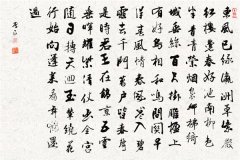 東風已綠瀛洲草紫殿
紅樓覺春好池南柳色
半青青縈煙裊娜拂綺
城垂絲百尺挂雕楹上
有好鳥相和鳴間關早得
春風情春風卷入碧
雲去千門萬戶皆春聲
是時君王在鎬京五雲
垂暉耀紫清仗出金宮
隨日轉天迴玉輦繞花
行始向蓬萊看舞鶴還
過